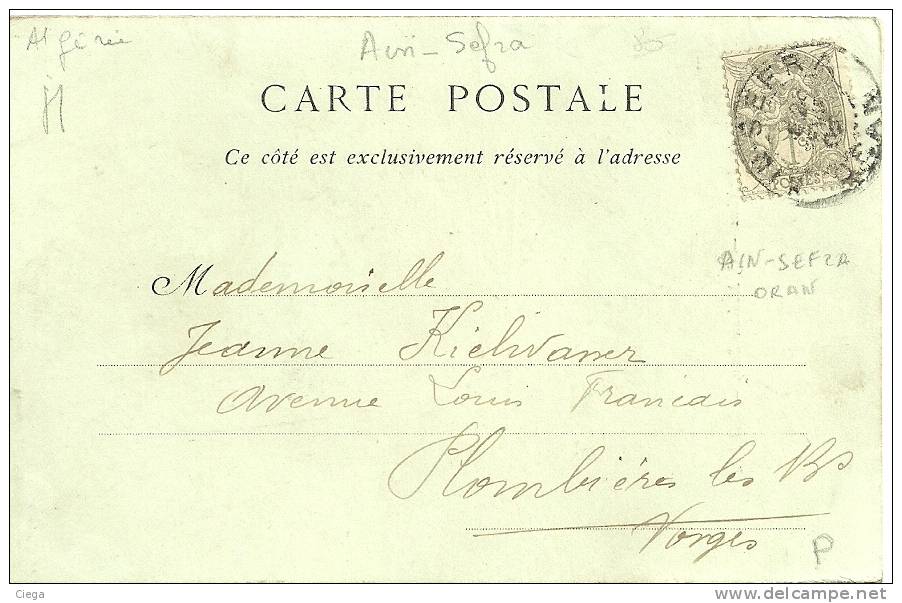 Algérie
Ain-Sefra
85
CARTE POSTALE
Ce côté est exclusivement réservé à l'adresse
POSTES
AIN-SEFRA
ORAN
Mademoiselle
Jeanne
Avenue Louis Francais
Plombières les Bs
Vosges
P
Ciega
www.delcampe.net